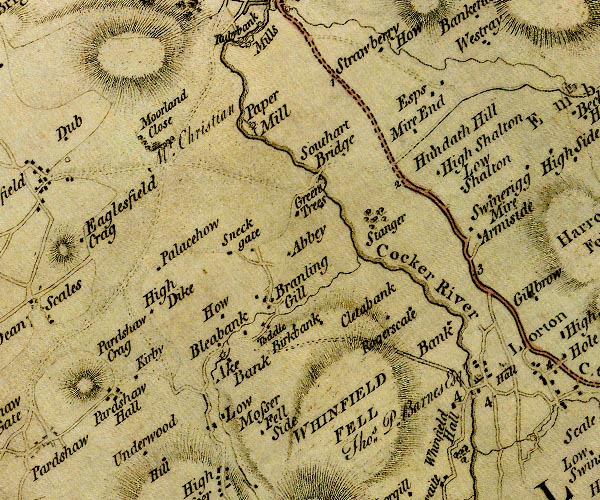 Rubybank
Mills
Strawberry
How
Westray
1
Paper
Mill
Moorland
Close
Mr. Christian
Dub
Esps
Mire End
Southart
Bridge
Hundath Hill
High Shalton
Low
Shalton
High Side
field
Eaglesfield
Crag
Green
Trees
2
Swinerigg
Mire
Armiside
Stanger
Abbey
Sneck
gate
Palacehow
Cocker River
3
Gillbrow
High
Dike
Scales
Branling
Gill
How
Bleabank
Cletabank
Birkbank
Rogerscale
Bank
Lorton
High
Hole
Hall
Pardshaw
Crag
Kirby
Bank
Pardshaw
Hall
Low
Mosser
Fell
Side
WHINFIELD
FELL
Thos. P. Barnes Esq
Whinfield
Hall
4
4
Pardshaw
Underwood
Hill
High
Scale
Low